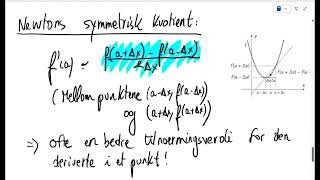 Newtons symmetrisk kvotient:
f'(a) ≈ f(a+Δx) - f(a-Δx)
2Δx
(Mellom punktene (a-Δx, f(a-Δx))
og (a+Δx, f(a+Δx)))
⇒ ofte en bedre tilnærmingsverdi for den
deriverte i et punkt!
f(a + Δx)
f(a - Δx)